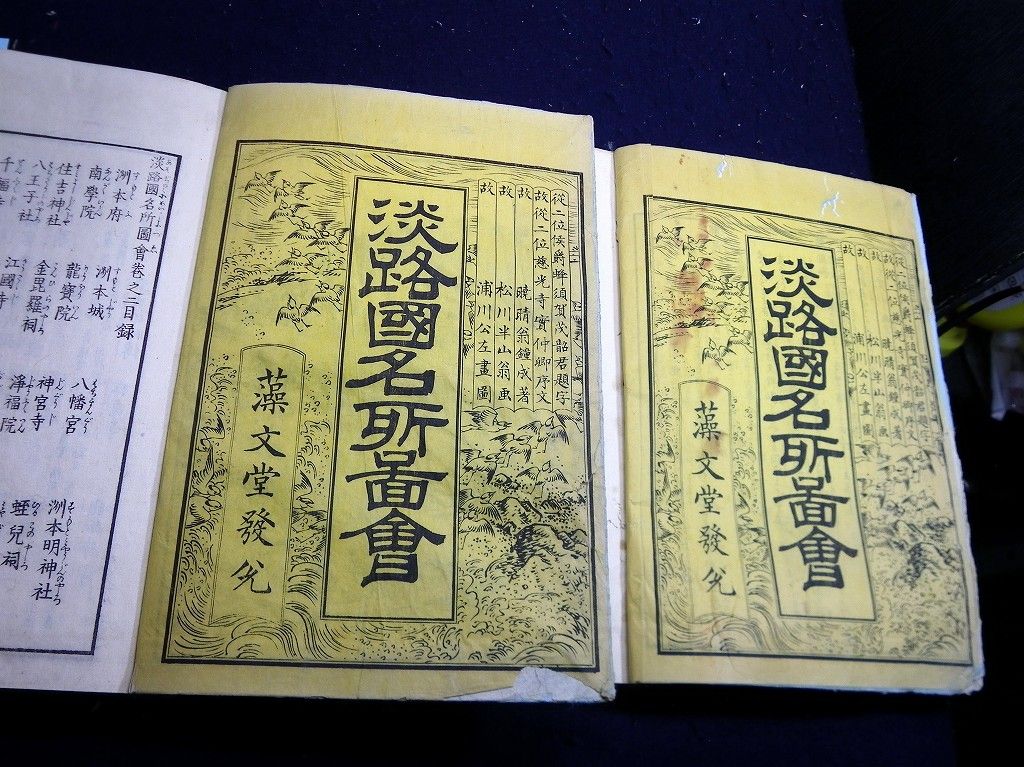 從二位侯爵蜂須賀茂韶君題字
故從二位慈光寺實仲卿序文
故 曉晴翁鐘成著
故 松川半山翁画
故 浦川公左畫圖
淡路國名所圖會
藻文堂發兌
從二位侯爵蜂須賀茂韶君題字
故從二位慈光寺實仲卿序文
故 曉晴翁鐘成著
故 松川半山翁画
故 浦川公左畫圖
淡路國名所圖會
藻文堂發兌
淡路國名所圖會卷之二目録
洲本府 洲本城 八幡宮 洲本明神社
南學院 龍寶院 神宮寺 蛭兒祠
住吉神社 金毘羅祠 淨福院
八王子社 江國寺
千福